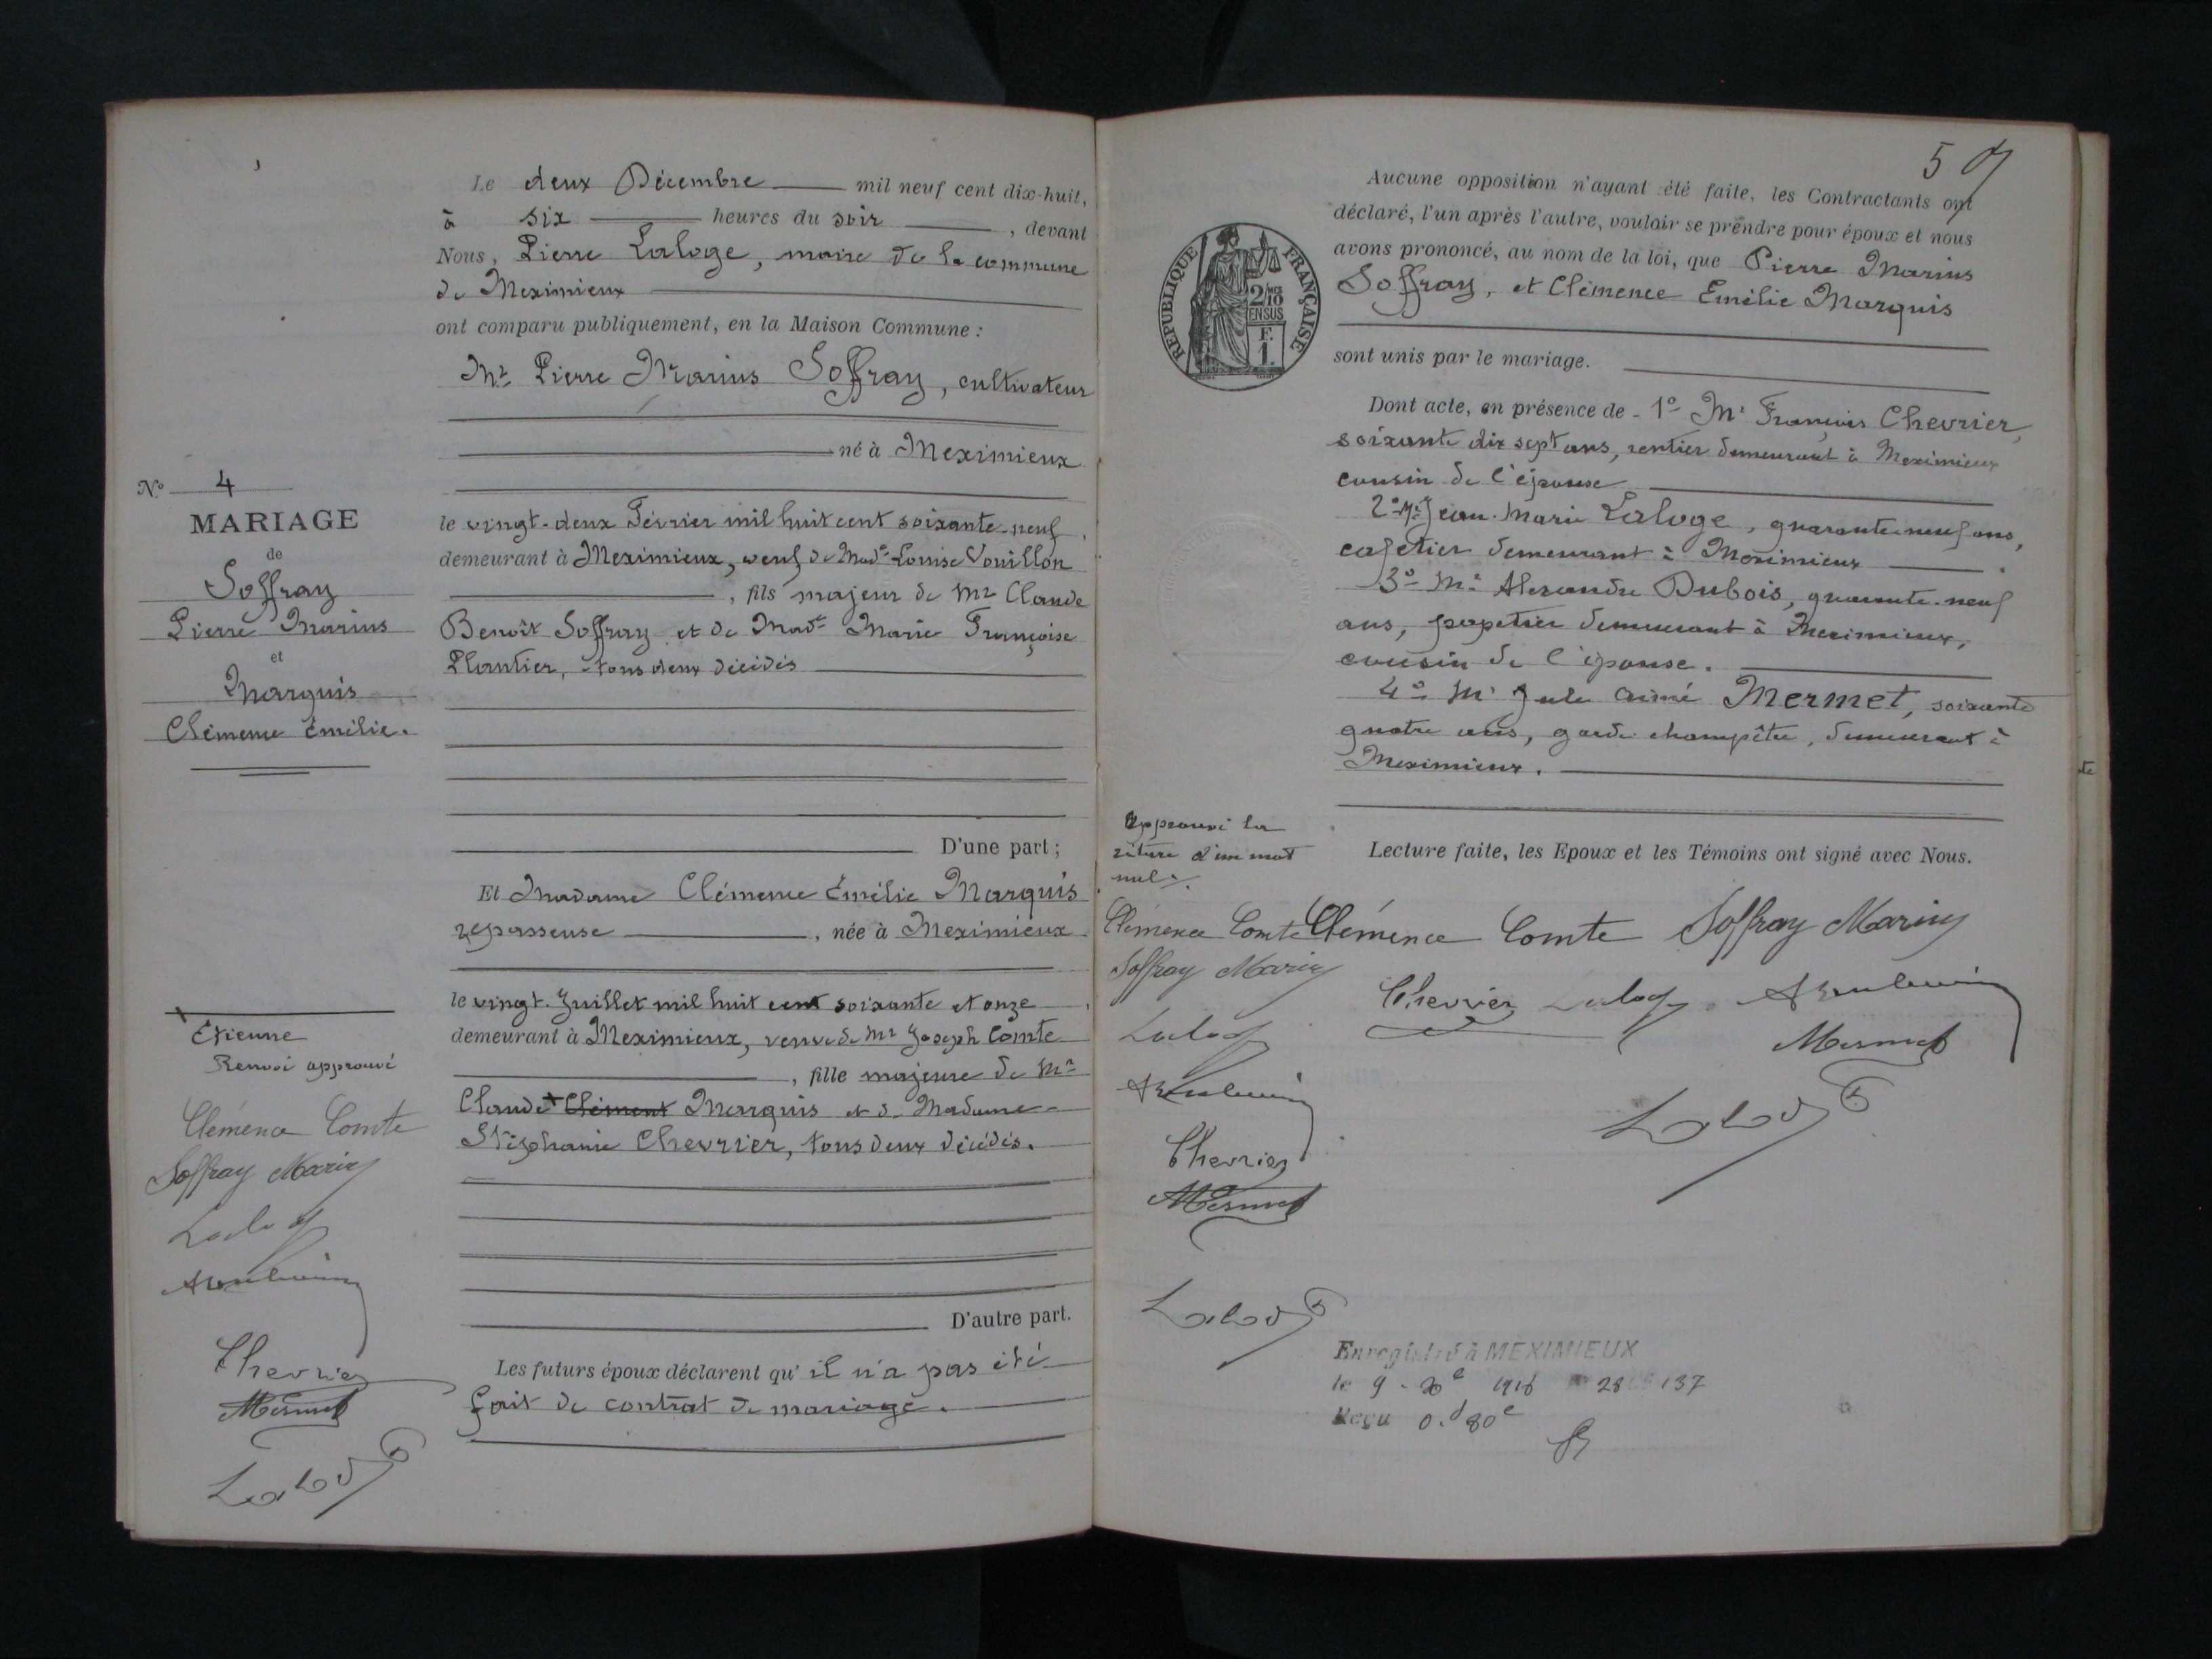 Le deux Décembre mil neuf cent dix-huit,
à six heures du soir , devant
Nous, Pierre Laloge, maire de la commune
de Meximieux
ont comparu publiquement, en la Maison Commune :
Mr Pierre Marius Soffray, cultivateur
né à Meximieux
le vingt-deux Février mil huit cent soixante-neuf,
demeurant à Meximieux, veuf de Made Louise Vouillon
, fils majeur de Mr Claude
Benoît Soffray et de Made Marie Françoise
Plantier, tous deux décédés
D'une part ;
Et Madame Clémence Emélie Marquis
repasseuse , née à Meximieux
le vingt-Juillet mil huit cent soixante et onze ,
demeurant à Meximieux, veuve de Mr Joseph Comte
, fille majeure de Mr
Claude + Clément Marquis et de Madame
Stéphanie Chevrier, tous deux décédés.
D'autre part.
Les futurs époux déclarent qu'il n'a pas été
fait de contrat de mariage.
No 4
MARIAGE
de
Soffray
Pierre Marius
et
Marquis
Clémence Emélie.
+
Etienne
Renvoi approuvé
Clémence Comte
Soffray Marius
Chevrier
Mermet
59
Aucune opposition n'ayant été faite, les Contractants ont
déclaré, l'un après l'autre, vouloir se prendre pour époux et nous
avons prononcé, au nom de la loi, que Pierre Marius
Soffray, et Clémence Emélie Marquis
sont unis par le mariage.
Dont acte, en présence de - 1o Mr François Chevrier,
soixante dix sept ans, rentier demeurant à Meximieux
cousin de l'épouse
2o Mr Jean-Marie Laloge, quarante-neuf ans,
cafetier demeurant à Meximieux
3o Mr Alexandre Dubois, quarante-neuf
ans, papetier demeurant à Meximieux,
cousin de l'épouse.
4o Mr Jule Aimé Mermet, soixante
quatre ans, garde champêtre, demeurant à
Meximieux.
REPUBLIQUE FRANÇAISE
2/10
EN SUS
F.
1.
Approuvé la
rature d'un mot
nul.
Lecture faite, les Epoux et les Témoins ont signé avec Nous.
Clémence Comte Clémence Comte Soffray Marius
Soffray Marius
Chevrier
Mermet
Chevrier
Mermet
Enregistré à MEXIMIEUX
le 9 - Xe 1918 28 137
Reçu 0.d 80c